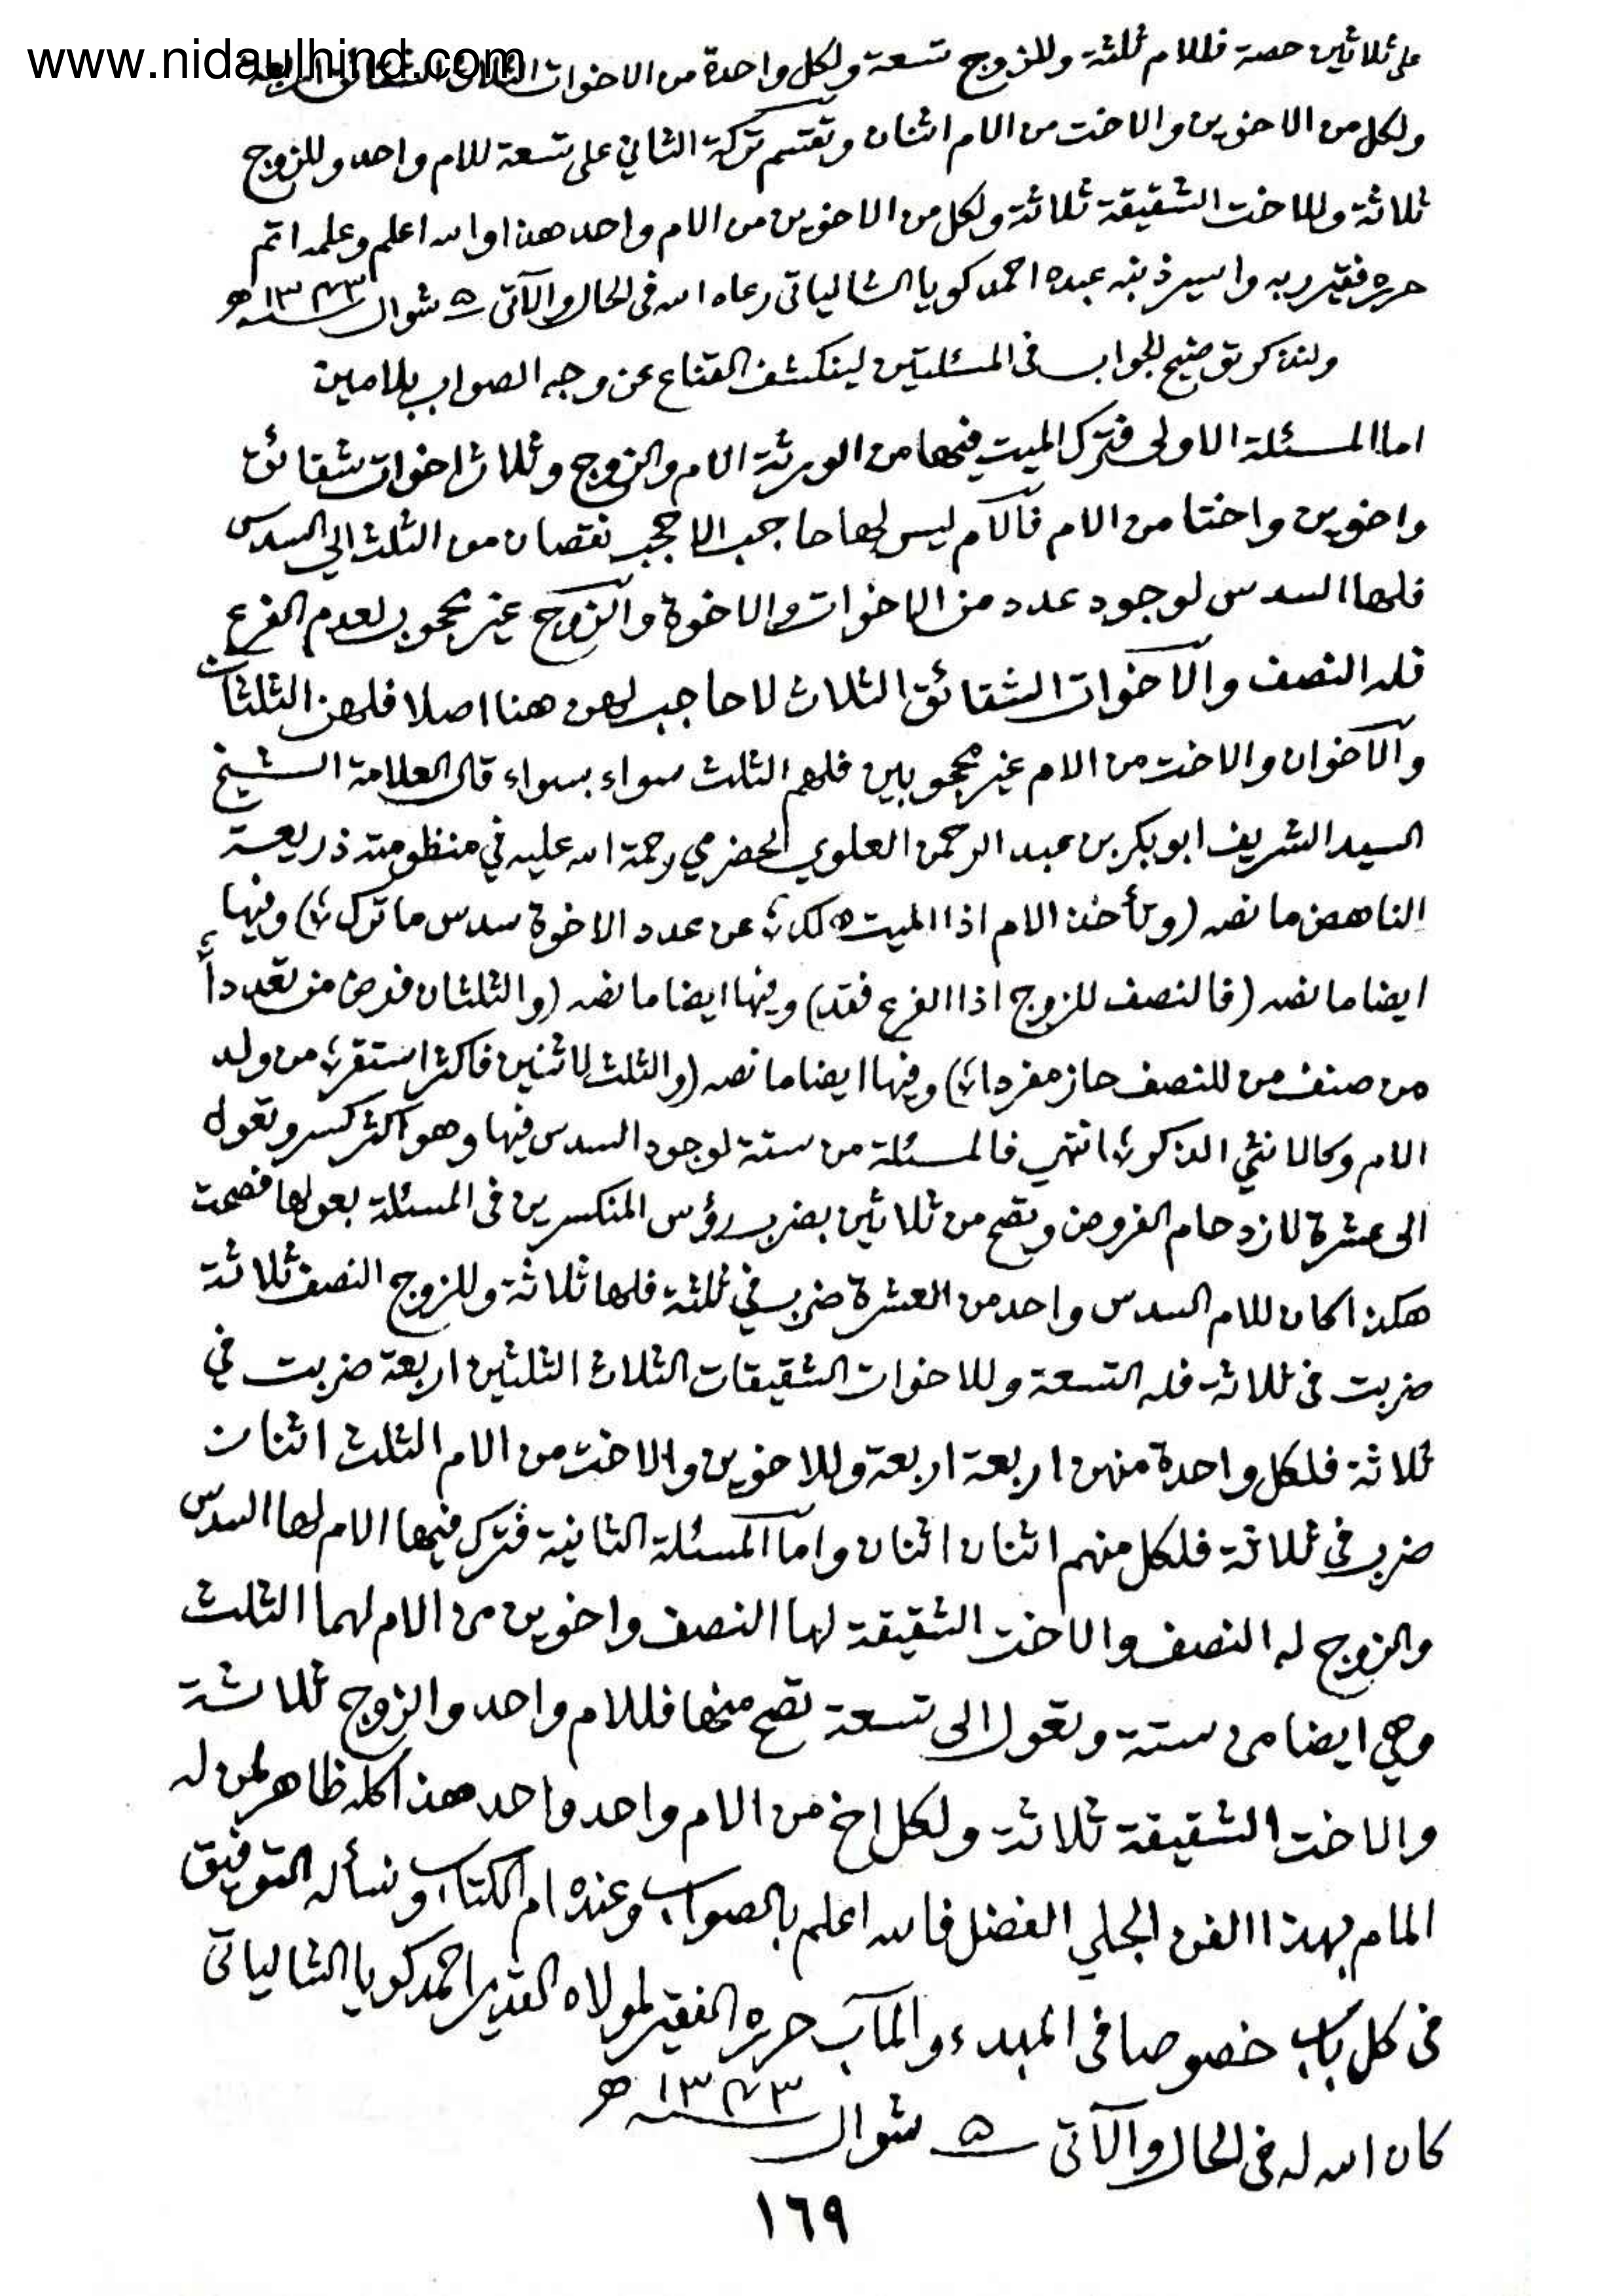 www.nidaulhind.com
على ثلاثين حصة فللام ثلثة وللزوج تسعة ولكل واحدة من الاخوات الثلاث الشقائق اربعة
ولكل من الاخوين والاخت من الام اثنان وتقتسم تركة الثاني على تسعة للام واحد وللزوج
ثلاثة وللاخت الشقيقة ثلاثة ولكل من الاخوين من الام واحد هذا والله اعلم وعلمه اتم
حرره فقير ربه واسير ذنبه عبده احمد كويا الشالياتى رعاه الله فى الحال والآتى ۵ شوال ١٣٧٣ھ
ولنذكر توضيح الجواب فى المسئلتين لينكشف القناع عن وجه الصواب بلا مين
اما المسئلة الاولى فترك الميت فيها من الورثة الام والزوج وثلاث اخوات شقائق
واخوين واختا من الام فالآم ليس لها حاجب الا حجب نقصان من الثلث الى السدس
فلها السدس لوجود عدد من الاخوات والاخوة والزوج غير محجوب لعدم الفرع
فله النصف والآخوات الشقائق الثلاث لا حاجب لهن هنا اصلا فلهن الثلثان
والآخوان والاخت من الام غير محجوبين فلهم الثلث سواء بسواء قال العلامة الشيخ
السيد الشريف ابو بكر بن عبد الرحمن العلوي الحضرمي رحمة الله عليه في منظومته ذريعة
الناهض ما نصه (وتأخذ الام اذا الميت هلك ؛ عن عدد الاخوة سدس ما ترك ؛) وفيها
ايضا ما نصه (فالنصف للزوج اذا الفرع فقد) وفيها ايضا ما نصه (والثلثان فرض من تعددأ ؛
من صنف من للنصف حاز مفردا ؛) وفيها ايضا ما نصه (والثلث لاثنين فاكثر استقر ؛ من ولد
الام وكالانثي الذكور ؛) انتهى فالمسئلة من ستة لوجود السدس فيها وهو اكثر كسر وتعول
الى عشرة لازدحام الفروض وتصح من ثلاثين بضرب رؤس المنكسرين فى المسئلة بعولها فصحت
هكذا كان للام السدس واحد من العشرة ضرب في ثلثة فلها ثلاثة وللزوج النصف ثلاثة
ضربت فى ثلاثة فله التسعة وللاخوات الشقيقات الثلاث الثلثين اربعة ضربت في
ثلاثة فلكل واحدة منهن اربعة اربعة وللاخوين والاخت من الام الثلث اثنان
ضرب فى ثلاثة فلكل منهم اثنان اثنان واما المسئلة الثانية فترك فيها الام لها السدس
والزوج له النصف والاخت الشقيقة لها النصف واخوين من الام لهما الثلث
وهي ايضا من ستة وتعول الى تسعة تصح منها فللام واحد والزوج ثلاثة
والاخت الشقيقة ثلاثة ولكل اخ من الام واحد واحد هذا كله ظاهر لمن له
المام بهذا الفن الجلي الفضل فالله اعلم بالصواب وعنده ام الكتاب ونسأله التوفيق
فى كل باب خصوصا فى المبدء والمآب حرره الفقير لمولاه القدير احمد كويا الشالياتى
كان الله له فى الحال والآتى ۵ شوال ١٣٧٣ھ
١٦٩